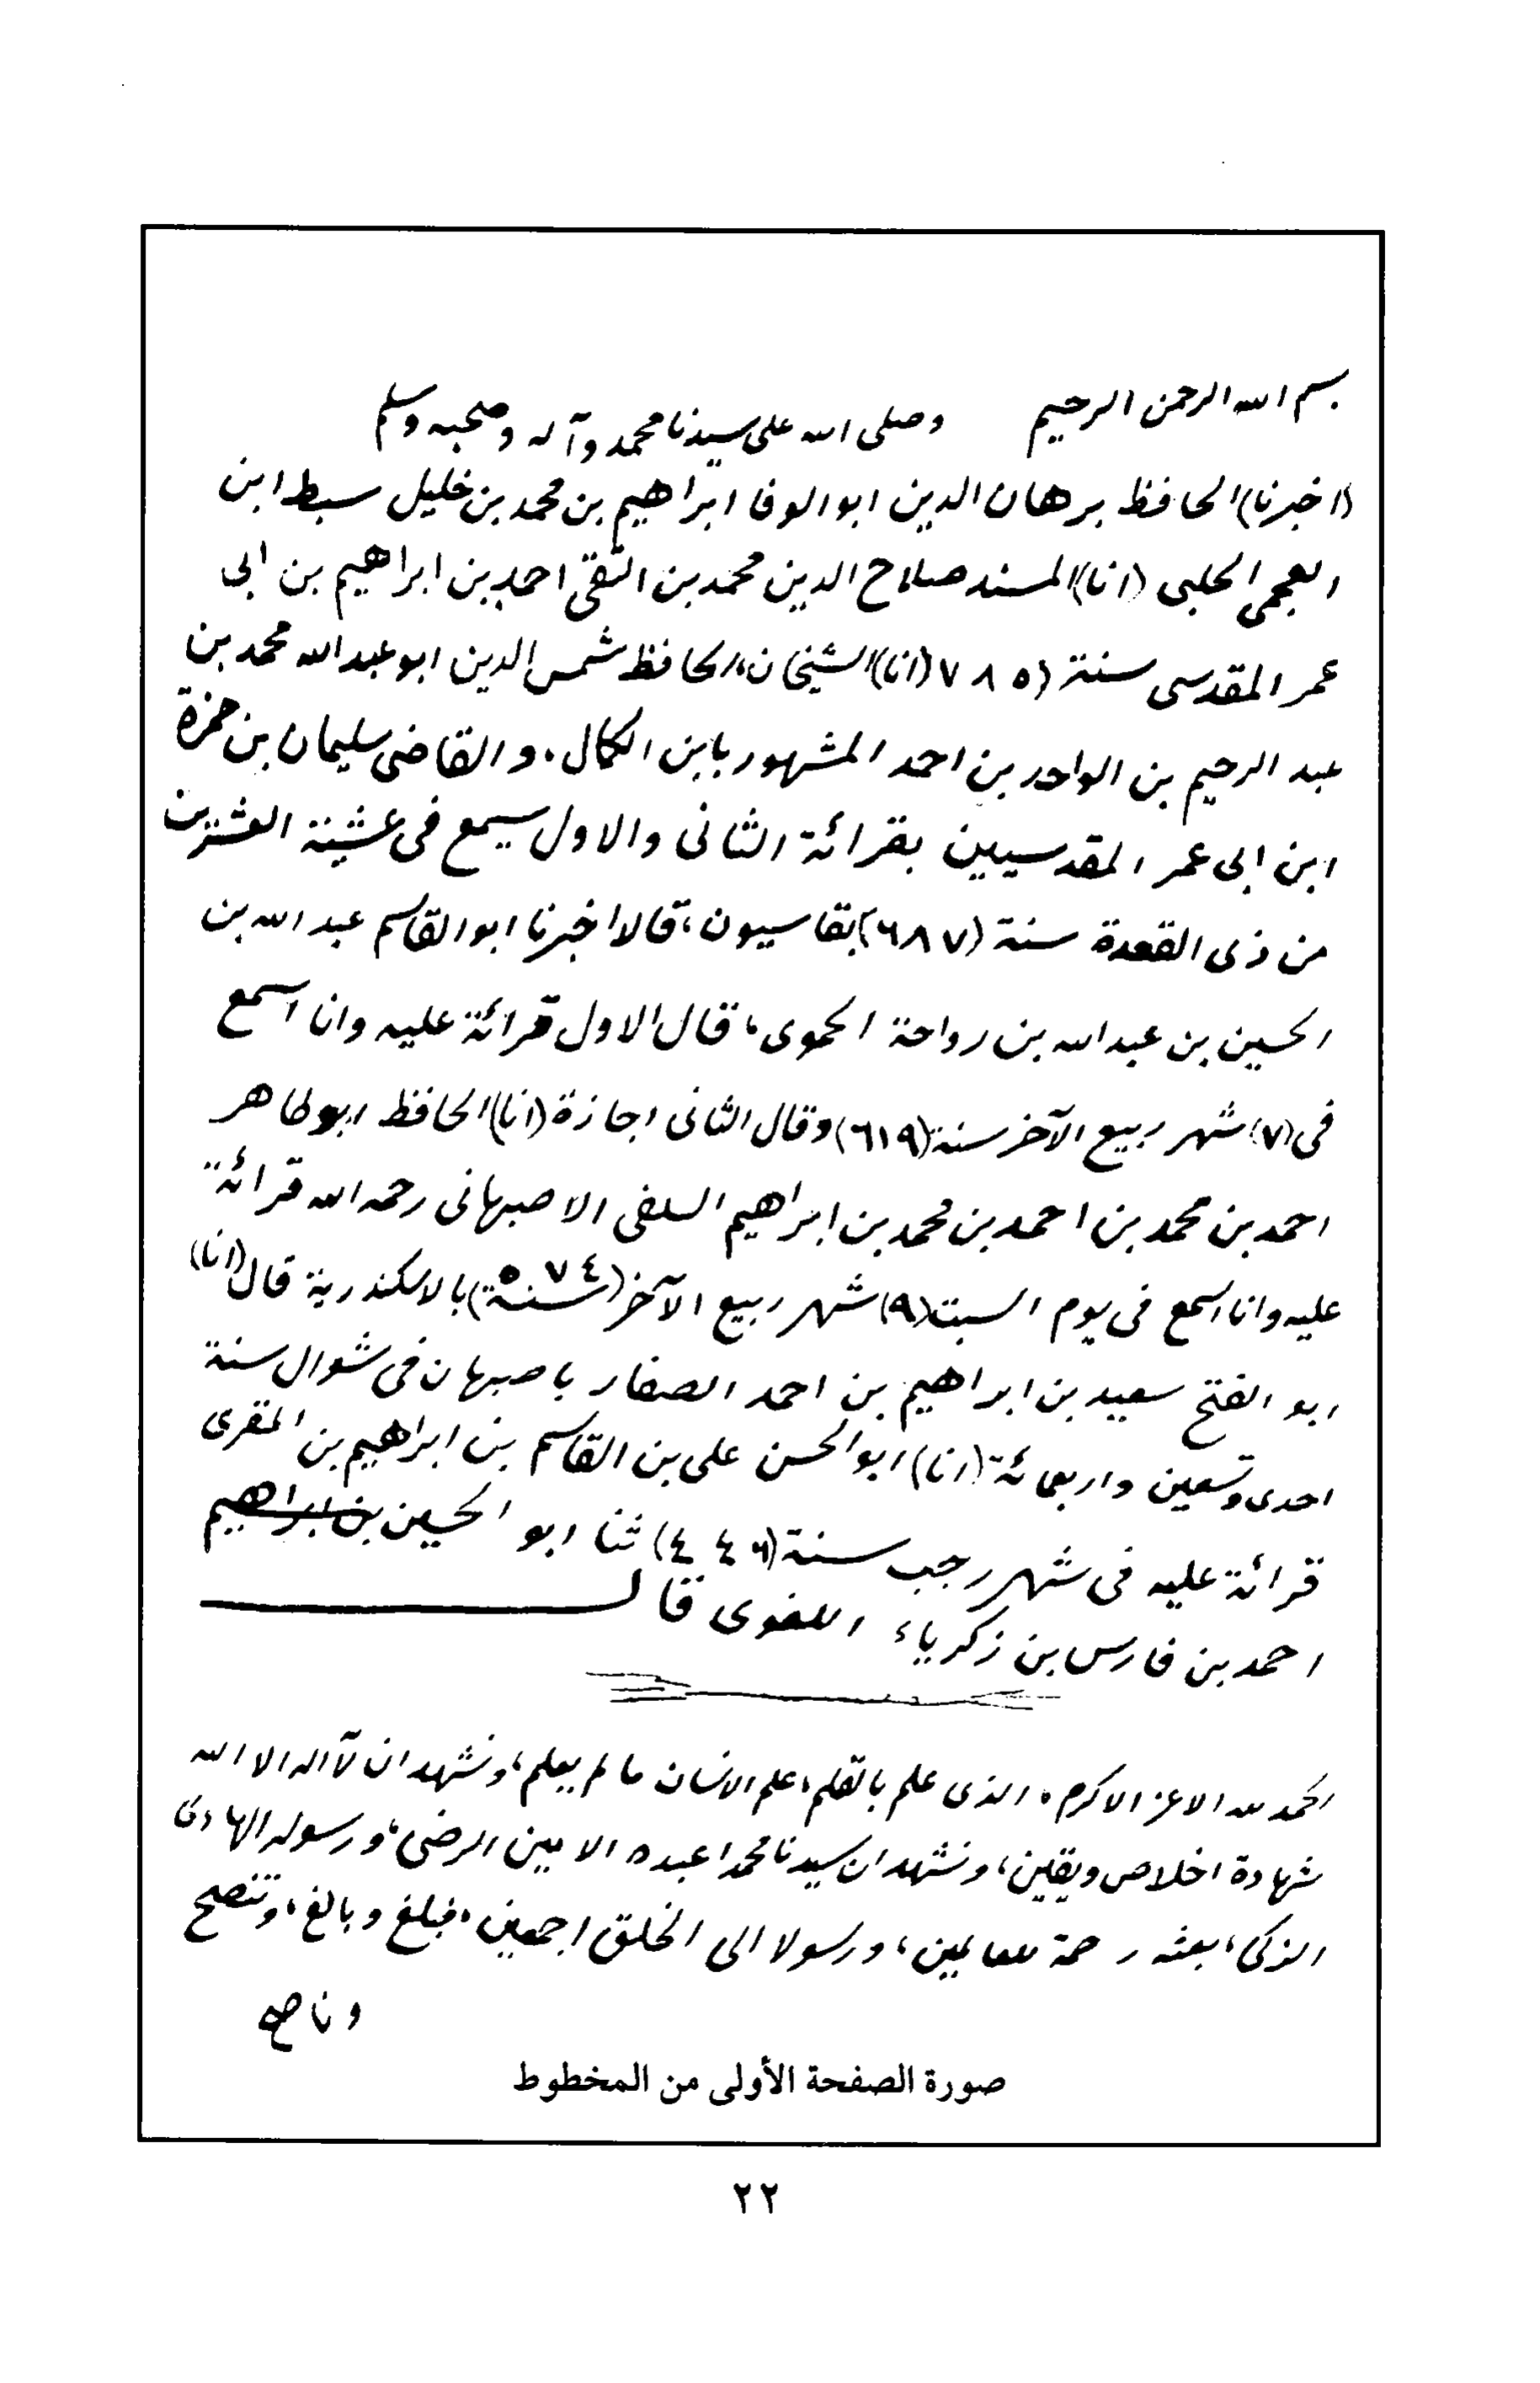 بسم الله الرحمن الرحيم وصلى الله على سيدنا محمد وآله وصحبه وسلم
(اخبرنا) الحافظ برهان الدين ابو الوفا ابراهيم بن محمد بن خليل سبط ابن
العجمى الحلبى (انا) المسند صلاح الدين محمد بن التقى احمد بن ابراهيم بن ابى
عمر المقدسى سنة (٧٨٥ (انا) الشيخان، الحافظ شمس الدين ابو عبد الله محمد بن
عبد الرحيم بن الواحد بن احمد المشهور بابن الكمال، والقاضى سليمان بن حمزة
ابن ابى عمر المقدسيين بقرائة الثانى والاول سيمع فى عشية العشرين
من ذى القعدة سنة (٦٨٧) بقاسيون، قالا اخبرنا ابو القاسم عبد الله بن
الحسين بن عبد الله بن رواحة الحموى، قال الاول قرائة عليه وانا اسمع
فى (٧) شهر ربيع الآخر سنة (٦١٩) وقال الثانى اجازة (انا) الحافظ ابو طاهر
احمد بن محمد بن احمد بن محمد بن ابراهيم السلفى الاصبهانى رحمه الله قرائة
عليه وانا اسمع فى يوم السبت (٩) شهر ربيع الآخر (سنة ٥٧٤) بالاسكندرية قال (انا)
ابو الفتح سعيد بن ابراهيم بن احمد الصفار باصبهان فى شوال سنة
احدى وتسعين واربعمائة (انا) ابو الحسن على بن القاسم بن ابراهيم بن المقرى
قرائة عليه فى شهر رجب سنة (٤٤٦) ثنا ابو الحسين بن ابراهيم
احمد بن فارس بن زكرياء اللغوى قال
الحمد لله الاعز الاكرم، الذى علم بالقلم، علم الانسان ما لم يعلم، ونشهد ان لآ اله الا الله
شهادة اخلاص ويقين، ونشهد ان سيدنا محمدا عبده الامين الرضى، ورسوله الهادى
الزكى، بعثه رحمة للعالمين، ورسولا الى الخلق اجمعين، فبلغ وبالغ، وتنصح
وناصح
صورة الصفحة الأولى من المخطوط
٢٢